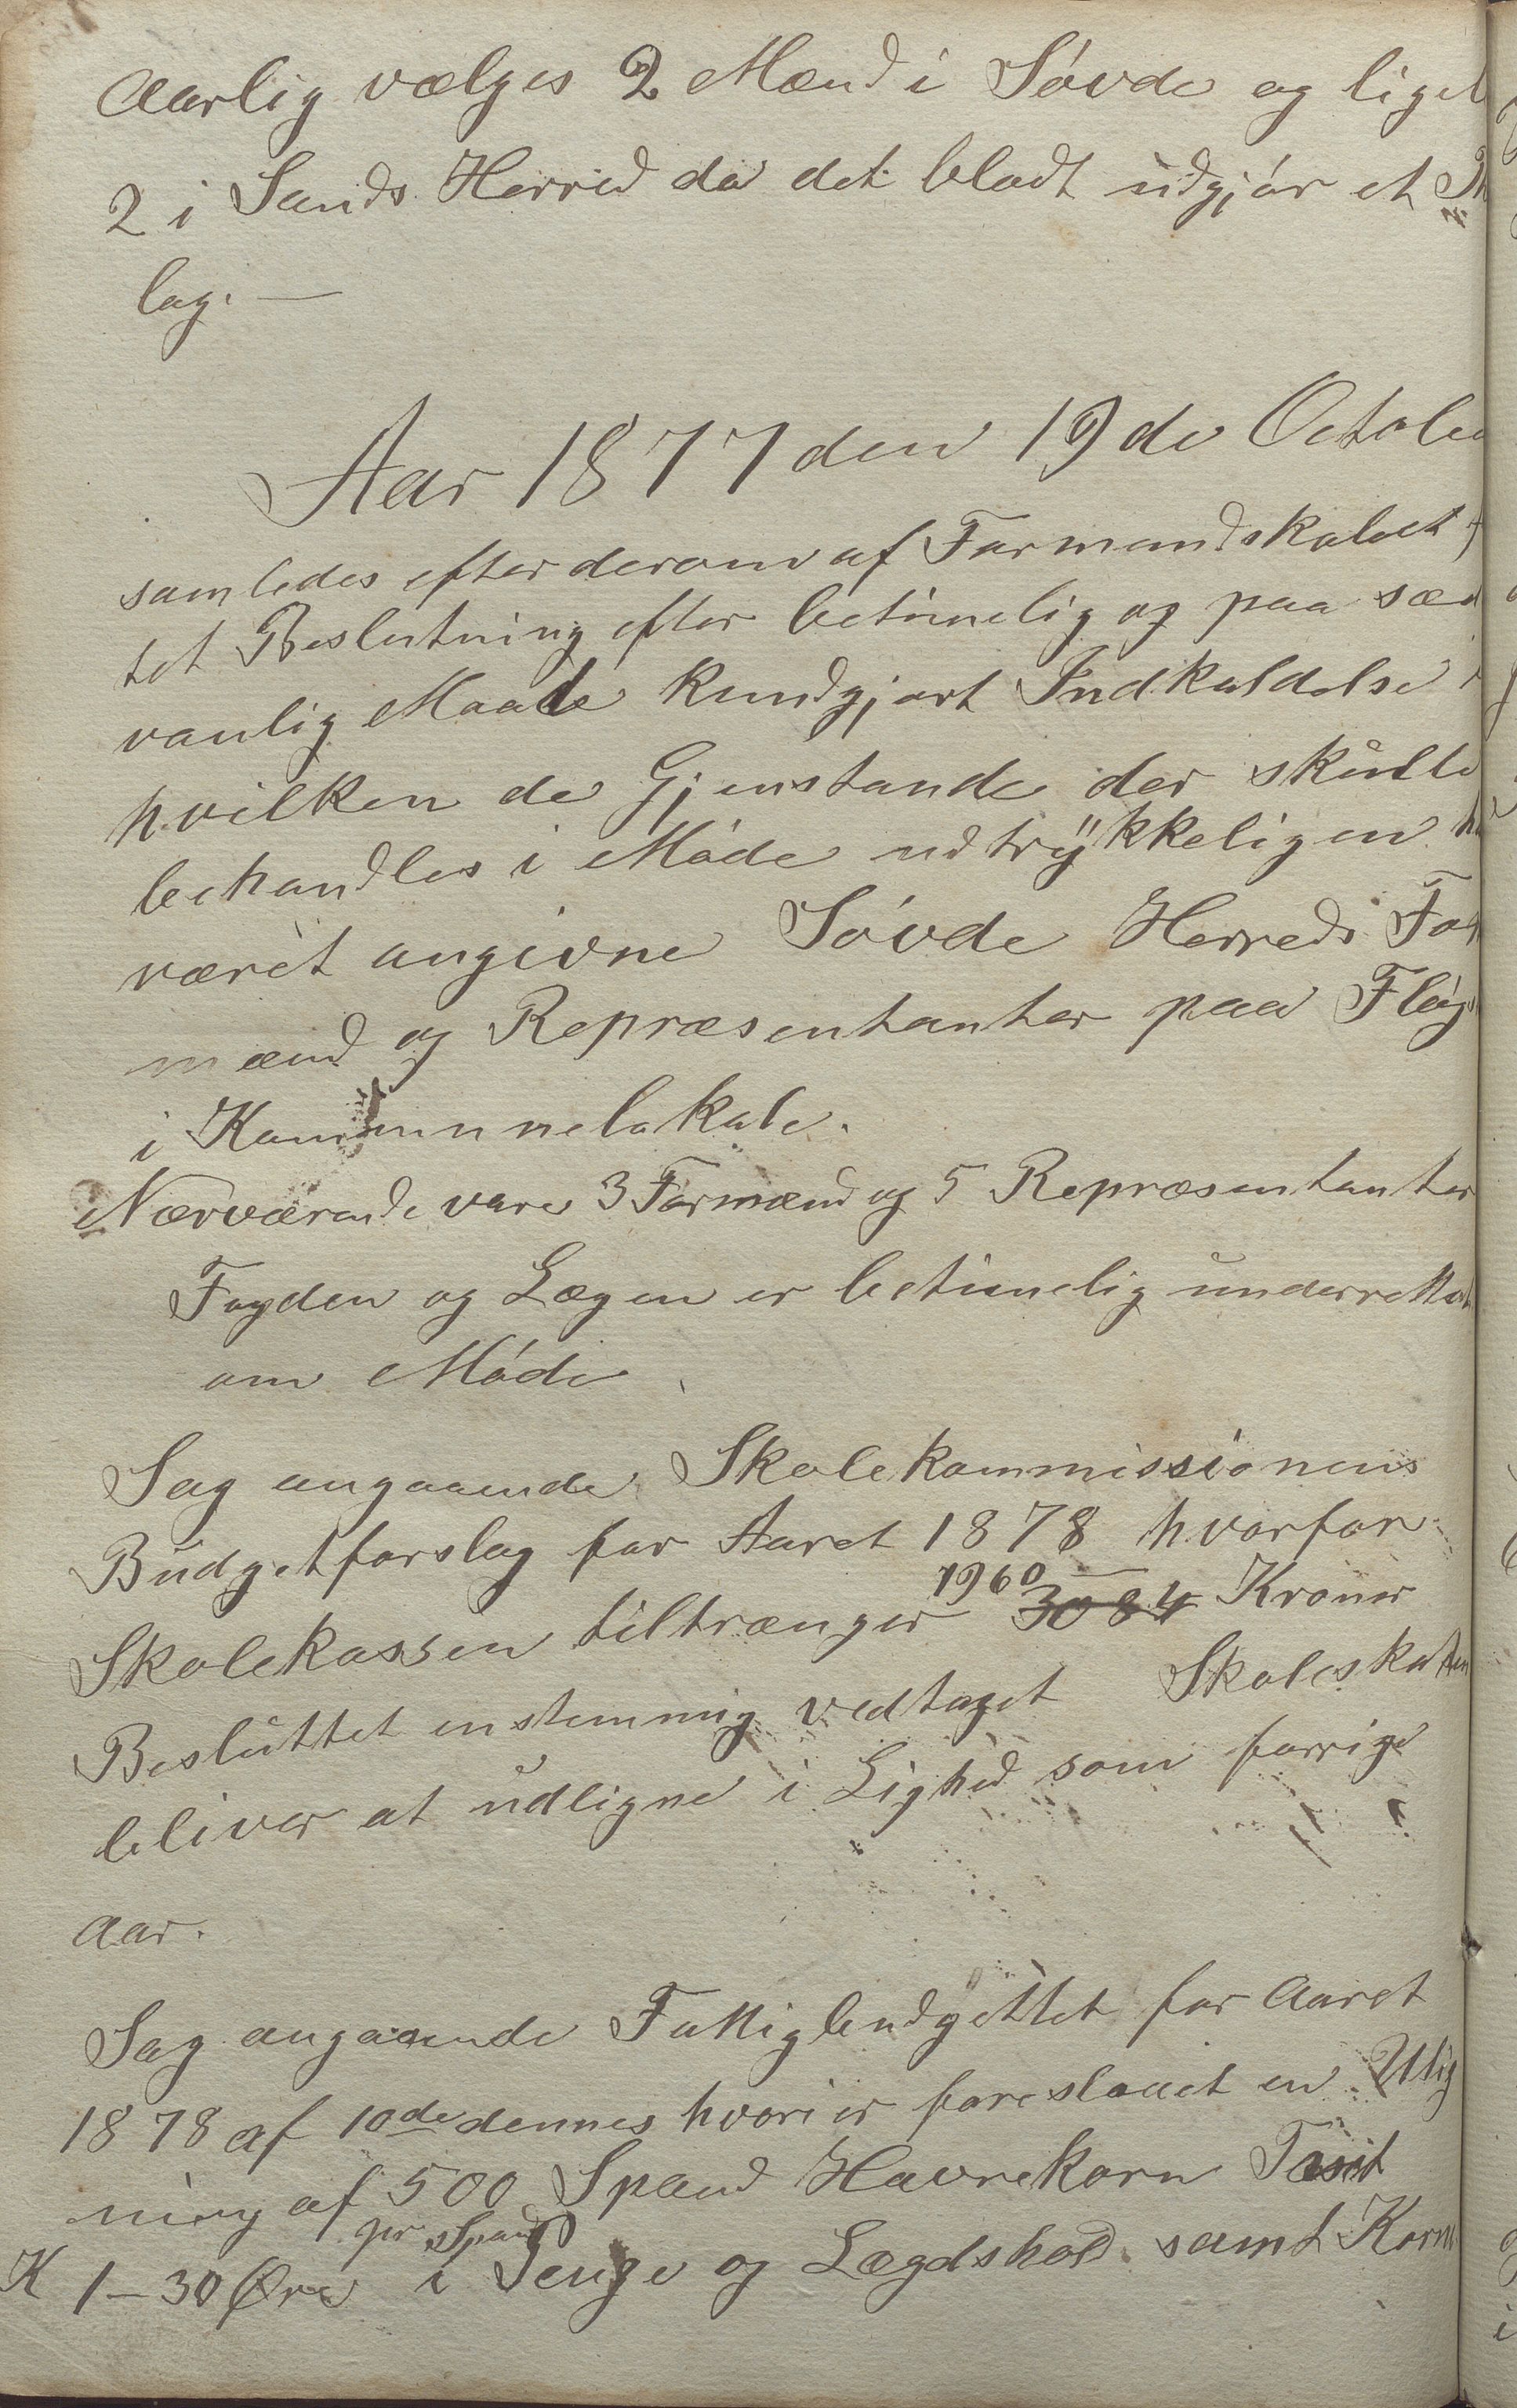 Aarlig vælges 2 Mænd i Søvde og liget
2 i Sands Herred da det blodt udgjør et Th
lag. —
Aar 1877 den 19de Octobe
samledes efter derom af Formandskabet f
tet Beslutning efter betimelig og paa sæd
vanlig Maade kundgjort Indkaldelse i
hvilken de Gjenstande der skulle
behandles i Møde udtrykkeligen h
været angivne Søvde Herreds For
mænd og Repræsentanter paa Fløg
i Kommunelokale.
Nærværende vare 3 Formænd og 5 Repræsentanter
Fogden og Lægen er betimelig underrettet
om Møde
Sag angaaende Skolekommissionens
Budgetforslag for Aaret 1878 hvorfor
Skolekassen tiltrænger 1960 3084 Kroner
Besluttet enstemmig vedtaget Skoleskatten
bliver at udligne i Lighed som forrige
Aar.
Sag angaaende Fattigbudgettet for Aaret
1878 af 10de dennes hvori er foreslaaet en Utlig
ning af 500 Spand Havrekorn Taxt
K 1-30 Øre pr Spand i Penge og Lægdshold samt Korn